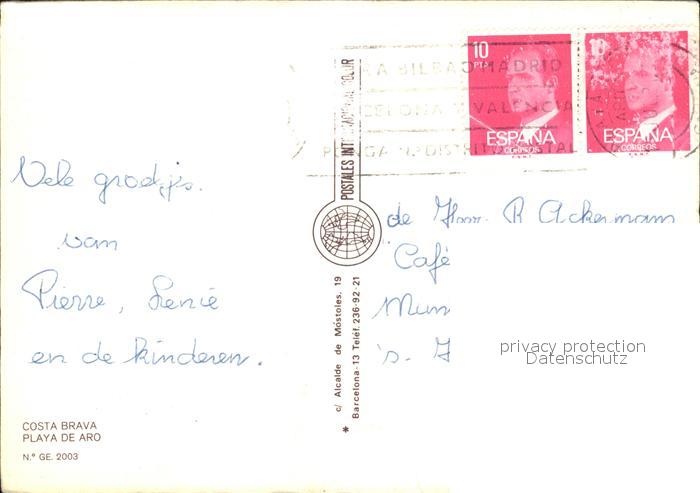 Vele groetjes.
van
Pierre, Lenie
en de kinderen.
COSTA BRAVA
PLAYA DE ARO
N.º GE. 2003
POSTALES INTERNACIONAL COLOR
c/ Alcalde de Móstoles, 19
* Barcelona-13 Teléf. 236-92-21
BILBAO MADRID
VALENCIA
PONGA N.º DISTRITO POSTAL
10
PTA
ESPAÑA
CORREOS
F.N.M.T.
10
ESPAÑA
CORREOS
F.N.M.T.
de Heer. P Ackermans
Café
privacy protection
Datenschutz